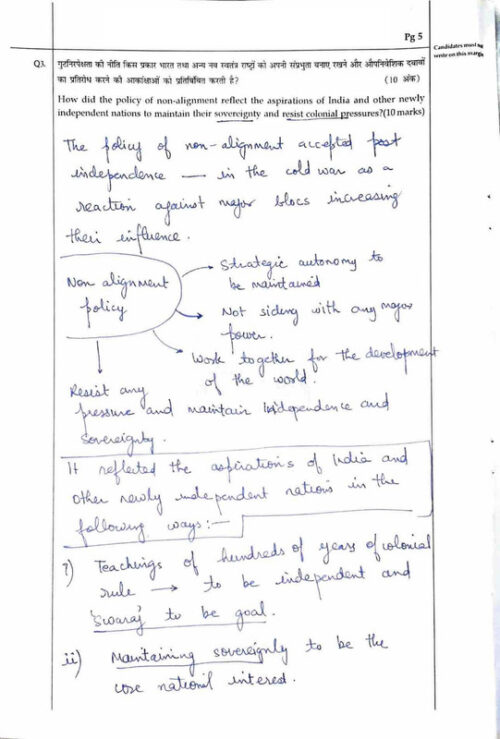 Pg 5
Candidates must not
write on this margin
Q3. गुटनिरपेक्षता की नीति किस प्रकार भारत तथा अन्य नव स्वतंत्र राष्ट्रों की अपनी संप्रभुता बनाए रखने और औपनिवेशिक दबावों
का प्रतिरोध करने की आकांक्षाओं को प्रतिबिंबित करती है? (10 अंक)
How did the policy of non-alignment reflect the aspirations of India and other newly
independent nations to maintain their sovereignty and resist colonial pressures?(10 marks)
The policy of non-alignment accepted post
independence — in the cold war as a
reaction against major blocs increasing
their influence.
Non alignment
policy
→ Strategic autonomy to
be maintained
→ Not siding with any major
power.
→ Work together for the development
of the world.
Resist any
pressure and maintain independence and
sovereignty.
It reflected the aspirations of India and
other newly independent nations in the
following ways:—
i) Teachings of hundreds of years of colonial
rule → to be independent and
'Swaraj' to be goal.
ii) Maintaining sovereignty to be the
core national interest.